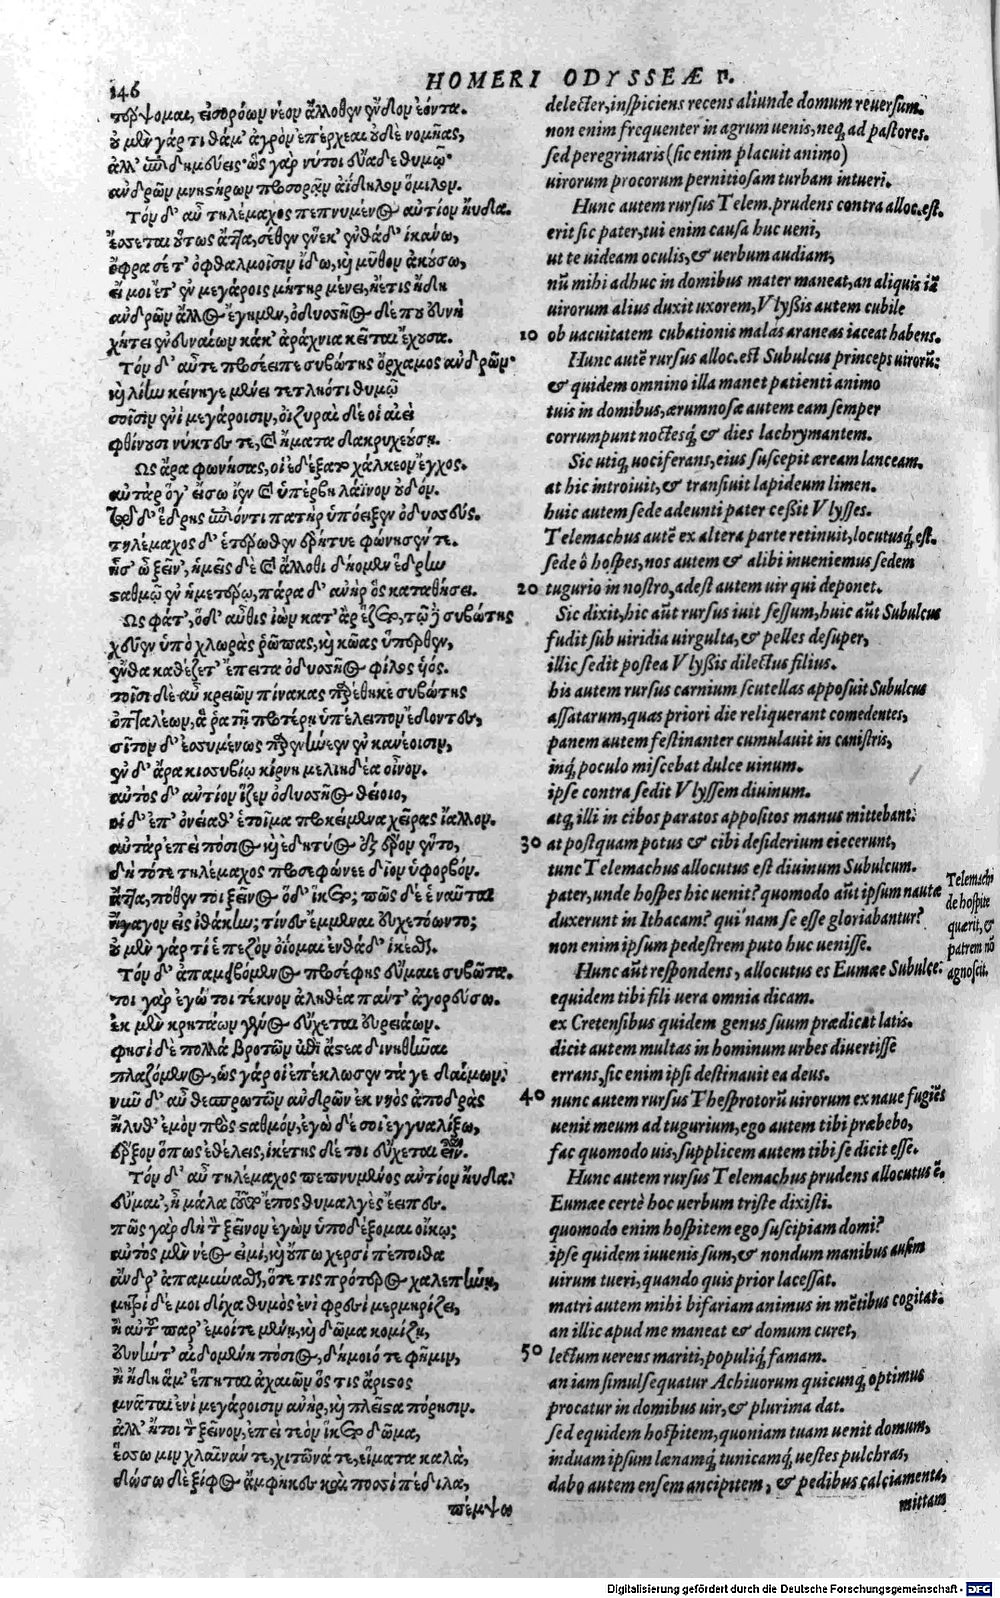 146
HOMERI ODYSSEÆ π.
τέρψομαι, εἰσορόων νέον ἄλλοθεν ἔνδον ἐόντα.
οὐ μὲν γάρ τι θάμ' ἀγρὸν ἐπέρχεαι οὐδὲ νομῆας,
ἀλλ' ἐπιδημεύεις· ὣς γάρ νύ τοι εὔαδε θυμῷ·
ἀνδρῶν μνηστήρων προσορᾷν ἀΐδηλον ὅμιλον.
Τὸν δ' αὖ τηλέμαχος πεπνυμένος ἀντίον ηὔδα.
ἔσσεται οὕτως ἄττα, σέθεν ἕνεκ' ἐνθάδ' ἱκάνω,
ὄφρα σέ τ' ὀφθαλμοῖσιν ἴδω, κὶ μῦθον ἀκούσω,
εἴ μοι ἔτ' ἐν μεγάροις μήτηρ μένει, ἤέ τις ἤδη
ἀνδρῶν ἄλλος ἔγημεν, ὀδυσσῆος δέ που εὐνὴ
χήτει ἐνευναίων κάκ' ἀράχνια κεῖται ἔχουσα.
Τὸν δ' αὖτε προσέειπε συβώτης ὄρχαμος ἀνδρῶν·
κὶ λίην κείνηγε μένει τετληότι θυμῷ
σοῖσιν ἐνὶ μεγάροισιν, ὀϊζυραὶ δέ οἱ αἰεὶ
φθίνουσι νύκτες τε, καὶ ἤματα δακρυχεούσῃ.
Ὣς ἄρα φωνήσας, οἱ ἐδέξατο χάλκεον ἔγχος.
αὐτὰρ ὅγ' εἴσω ἴεν καὶ ὑπέρβη λάϊνον οὐδόν.
τῷ δ' ἕδρης ἐπιόντι πατὴρ ὑπόειξεν ὀδυσσεύς.
τηλέμαχος δ' ἑτέρωθεν ἐρήτυε φώνησέν τε.
ἧσ' ὦ ξεῖν', ἡμεῖς δὲ καὶ ἄλλοθι δήομεν ἕδρην
σταθμῷ ἐν ἡμετέρῳ, πάρα δ' ἀνὴρ ὃς καταθήσει.
Ὣς φάτ', ὁδ' αὖθις ἰὼν κατ' ἂρ ἕζετο, τῷ δὲ συβώτης
χεῦεν ὑπὸ χλωρὰς ῥῶπας, κὶ κῶας ὕπερθεν,
ἔνθα καθέζετ' ἔπειτα ὀδυσσῆος φίλος υἱός.
τοῖσι δὲ αὖ κρειῶν πίνακας παρέθηκε συβώτης
ὀπταλέων, ἅ ῥα τῇ προτέρῃ ὑπέλειπον ἔδοντες,
σῖτον δ' ἐσσυμένως παρενήνεεν ἐν κανέοισιν,
ἐν δ' ἄρα κισσυβίῳ κίρνη μελιηδέα οἶνον.
αὐτὸς δ' ἀντίον ἷζεν ὀδυσσῆος θείοιο,
οἱ δ' ἐπ' ὀνείαθ' ἑτοῖμα προκείμενα χεῖρας ἴαλλον.
αὐτὰρ ἐπεὶ πόσιος κὶ ἐδητύος ἐξ ἔρον ἕντο,
δὴ τότε τηλέμαχος προσεφώνεε δῖον ὑφορβόν.
ἄττα, πόθεν τοι ξεῖνος ὅδ' ἵκετο; πῶς δέ ἑ ναῦται
ἤγαγον εἰς ἰθάκην; τίνες ἔμμεναι εὐχετόωντο;
οὐ μὲν γάρ τί ἑ πεζὸν ὀΐομαι ἐνθάδ' ἱκέσθαι.
Τὸν δ' ἀπαμειβόμενος προσέφης εὔμαιε συβῶτα.
τοι γὰρ ἐγώ τοι τέκνον ἀληθέα πάντ' ἀγορεύσω.
ἐκ μὲν κρητάων γένος εὔχεται εὐρειάων.
φησὶ δὲ πολλὰ βροτῶν ἐπὶ ἄστεα δινηθῆναι
πλαζόμενος, ὣς γάρ οἱ ἐπέκλωσεν τά γε δαίμων.
νῦν δ' αὖ θεσπρωτῶν ἀνδρῶν ἐκ νηὸς ἀποδρὰς
ἤλυθ' ἐμὸν πρὸς σταθμόν, ἐγὼ δέ σοι ἐγγυαλίξω,
ἔρξον ὅπως ἐθέλεις, ἱκέτης δέ τοι εὔχεται εἶναι.
Τὸν δ' αὖ τηλέμαχος πεπνυμένος ἀντίον ηὔδα.
εὔμαι', ἦ μάλα τοῦτο ἔπος θυμαλγὲς ἔειπες.
πῶς γὰρ δὴ τὸν ξεῖνον ἐγὼν ὑποδέξομαι οἴκῳ;
αὐτὸς μὲν νέος εἰμί, κὶ οὔπω χερσὶ πέποιθα
ἄνδρ' ἀπαμύνασθαι, ὅτε τις πρότερος χαλεπήνῃ,
μητρὶ δέ μοι δίχα θυμὸς ἐνὶ φρεσὶ μερμηρίζει,
ἢ αὐτοῦ παρ' ἐμοίτε μένῃ, κὶ δῶμα κομίζῃ,
εὐνήν τ' αἰδομένη πόσιος, δήμοιό τε φῆμιν,
ἢ ἤδη ἅμ' ἕπηται ἀχαιῶν ὅς τις ἄριστος
μνᾶται ἐνὶ μεγάροισιν ἀνήρ, κὶ πλεῖστα πόρῃσιν.
ἀλλ' ἤτοι τὸν ξεῖνον, ἐπεὶ τεὸν ἵκετο δῶμα,
ἕσσω μιν χλαῖνάν τε, χιτῶνά τε, εἵματα καλὰ,
δώσω δὲ ξίφος ἄμφηκες καὶ ποσὶ πέδιλα,
πέμψω
delecter, inspiciens recens aliunde domum reuersum.
non enim frequenter in agrum uenis, neq; ad pastores.
sed peregrinaris (sic enim placuit animo)
uirorum procorum pernitiosam turbam intueri.
Hunc autem rursus Telem. prudens contra alloc. est.
erit sic pater, tui enim causa huc ueni,
ut te uideam oculis, & uerbum audiam,
nū mihi adhuc in domibus mater maneat, an aliquis iā
uirorum alius duxit uxorem, Vlyssis autem cubile
10 ob uacuitatem cubationis malas araneas iaceat habens.
Hunc autē rursus alloc. est Subulcus princeps uirorū:
& quidem omnino illa manet patienti animo
tuis in domibus, ærumnosæ autem eam semper
corrumpunt noctesq́; & dies lachrymantem.
Sic utiq; uociferans, eius suscepit æream lanceam.
at hic introiuit, & transiuit lapideum limen.
huic autem sede adeunti pater cessit Vlysses.
Telemachus autē ex altera parte retinuit, locutusq́; est.
sede ô hospes, nos autem & alibi inueniemus sedem
20 tugurio in nostro, adest autem uir qui deponet.
Sic dixit, hic aūt rursus iuit sessum, huic aūt Subulcus
fudit sub uiridia uirgulta, & pelles desuper,
illic sedit postea Vlyssis dilectus filius.
his autem rursus carnium scutellas apposuit Subulcus
assatarum, quas priori die reliquerant comedentes,
panem autem festinanter cumulauit in canistris,
inq́; poculo miscebat dulce uinum.
ipse contra sedit Vlyssem diuinum.
atq; illi in cibos paratos appositos manus mittebant.
30 at postquam potus & cibi desiderium eiecerunt,
tunc Telemachus allocutus est diuinum Subulcum.
pater, unde hospes hic uenit? quomodo aūt ipsum nautæ
duxerunt in Ithacam? qui nam se esse gloriabantur?
non enim ipsum pedestrem puto huc uenisse.
Hunc aūt respondens, allocutus es Eumæe Subulce:
equidem tibi fili uera omnia dicam.
ex Cretensibus quidem genus suum prædicat latis.
dicit autem multas in hominum urbes diuertisse
errans, sic enim ipsi destinauit ea deus.
40 nunc autem rursus Thesprotorū uirorum ex naue fugiēs
uenit meum ad tugurium, ego autem tibi præbebo,
fac quomodo uis, supplicem autem tibi se dicit esse.
Hunc autem rursus Telemachus prudens allocutus ē.
Eumæe certè hoc uerbum triste dixisti.
quomodo enim hospitem ego suscipiam domi?
ipse quidem iuuenis sum, & nondum manibus ausim
uirum tueri, quando quis prior lacessat.
matri autem mihi bifariam animus in mētibus cogitat.
an illic apud me maneat & domum curet,
50 lectum uerens mariti, populiq́; famam.
an iam simul sequatur Achiuorum quicunq; optimus
procatur in domibus uir, & plurima dat.
sed equidem hospitem, quoniam tuam uenit domum,
induam ipsum lænamq́; tunicamq́; uestes pulchras,
dabo autem ensem ancipitem, & pedibus calciamenta,
mittam
Telemachꝰ
de hospite
quærit, &
patrem nō
agnoscit.
Digitalisierung gefördert durch die Deutsche Forschungsgemeinschaft - DFG